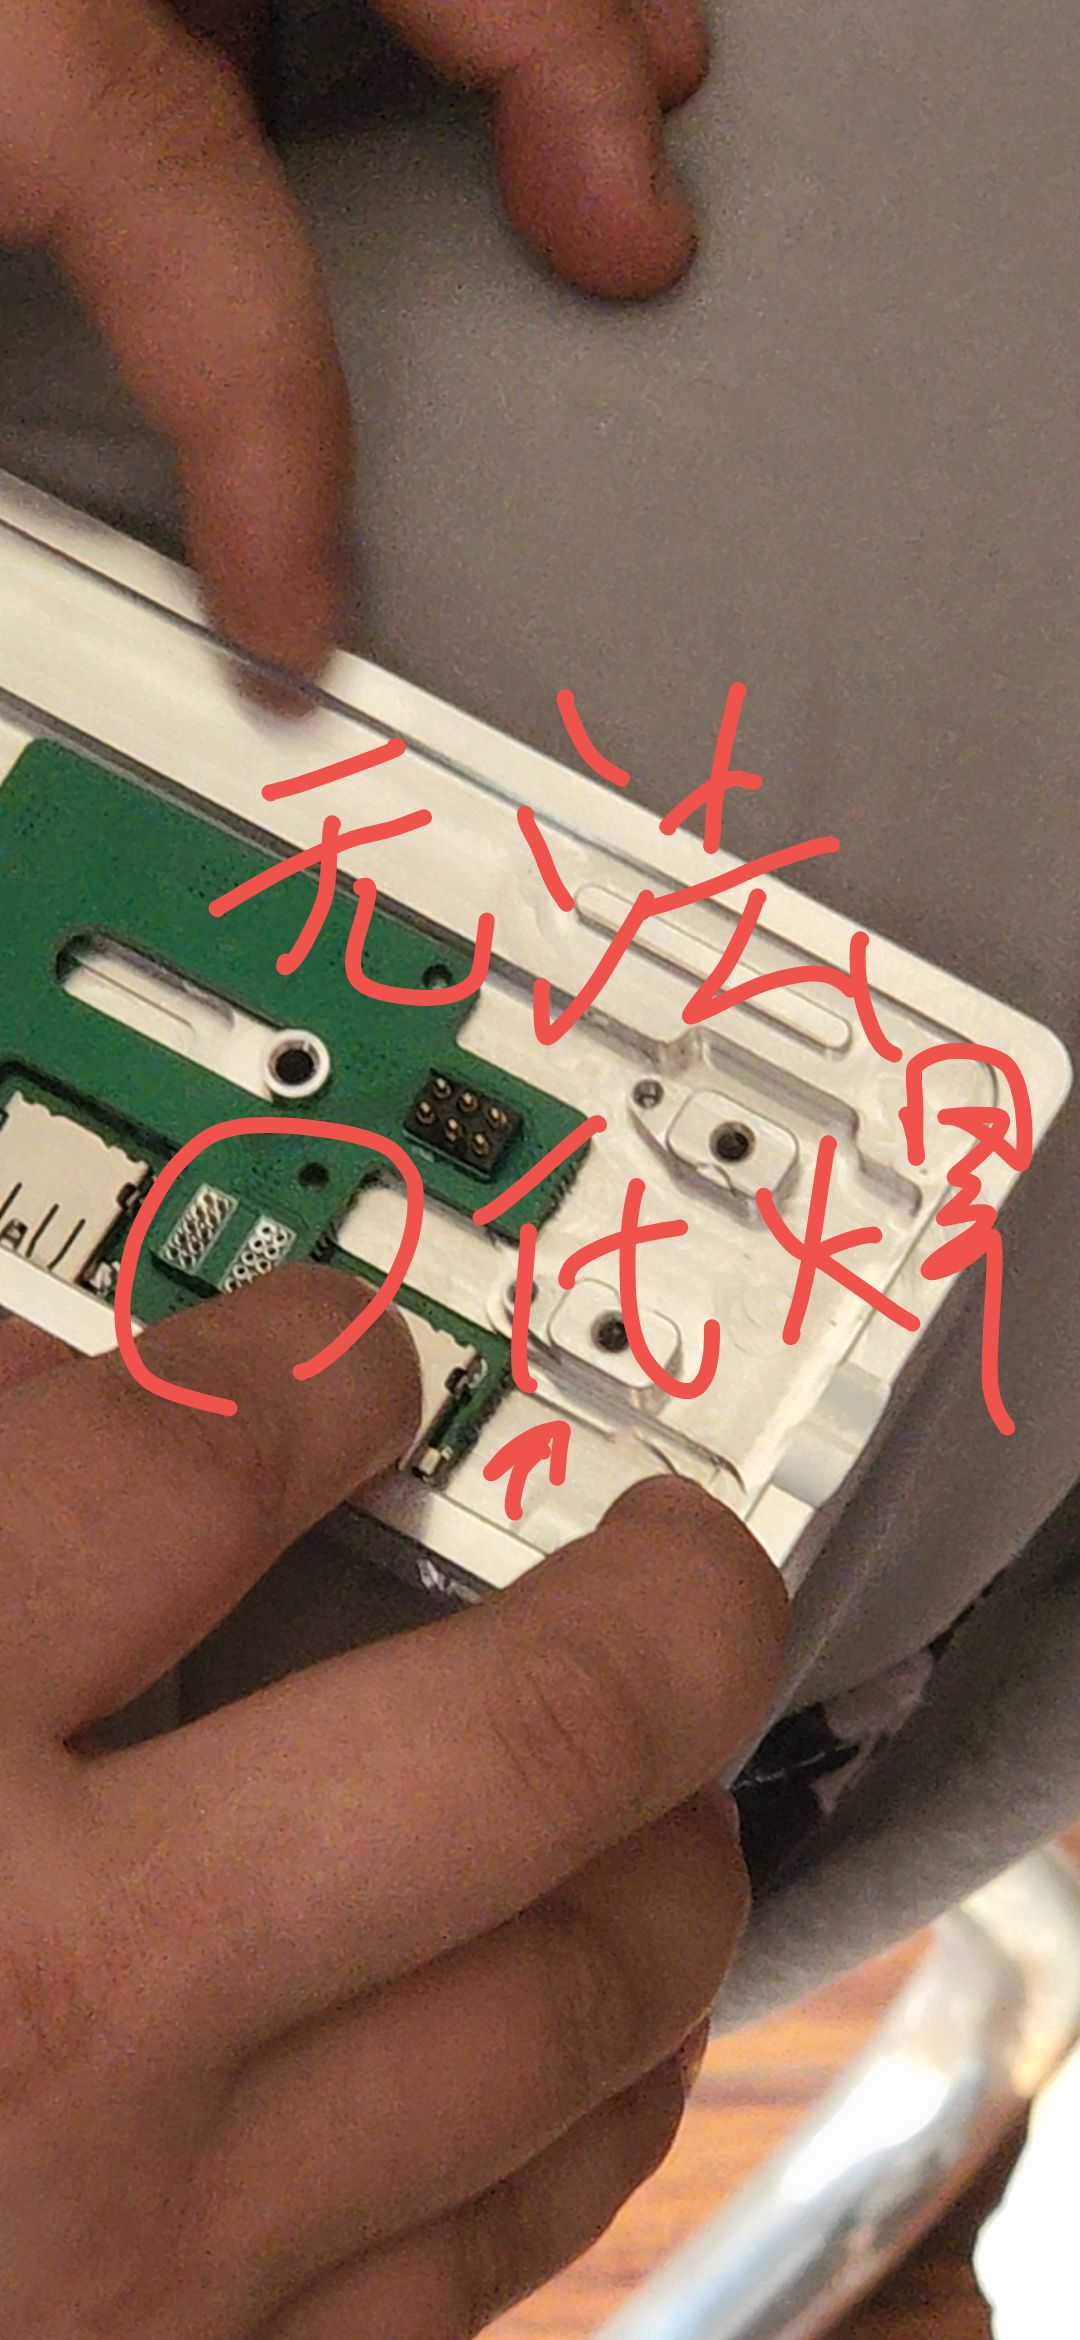 无法
代焊